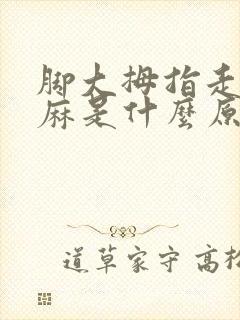 脚大拇指走
麻是什麼原
道草家守高松